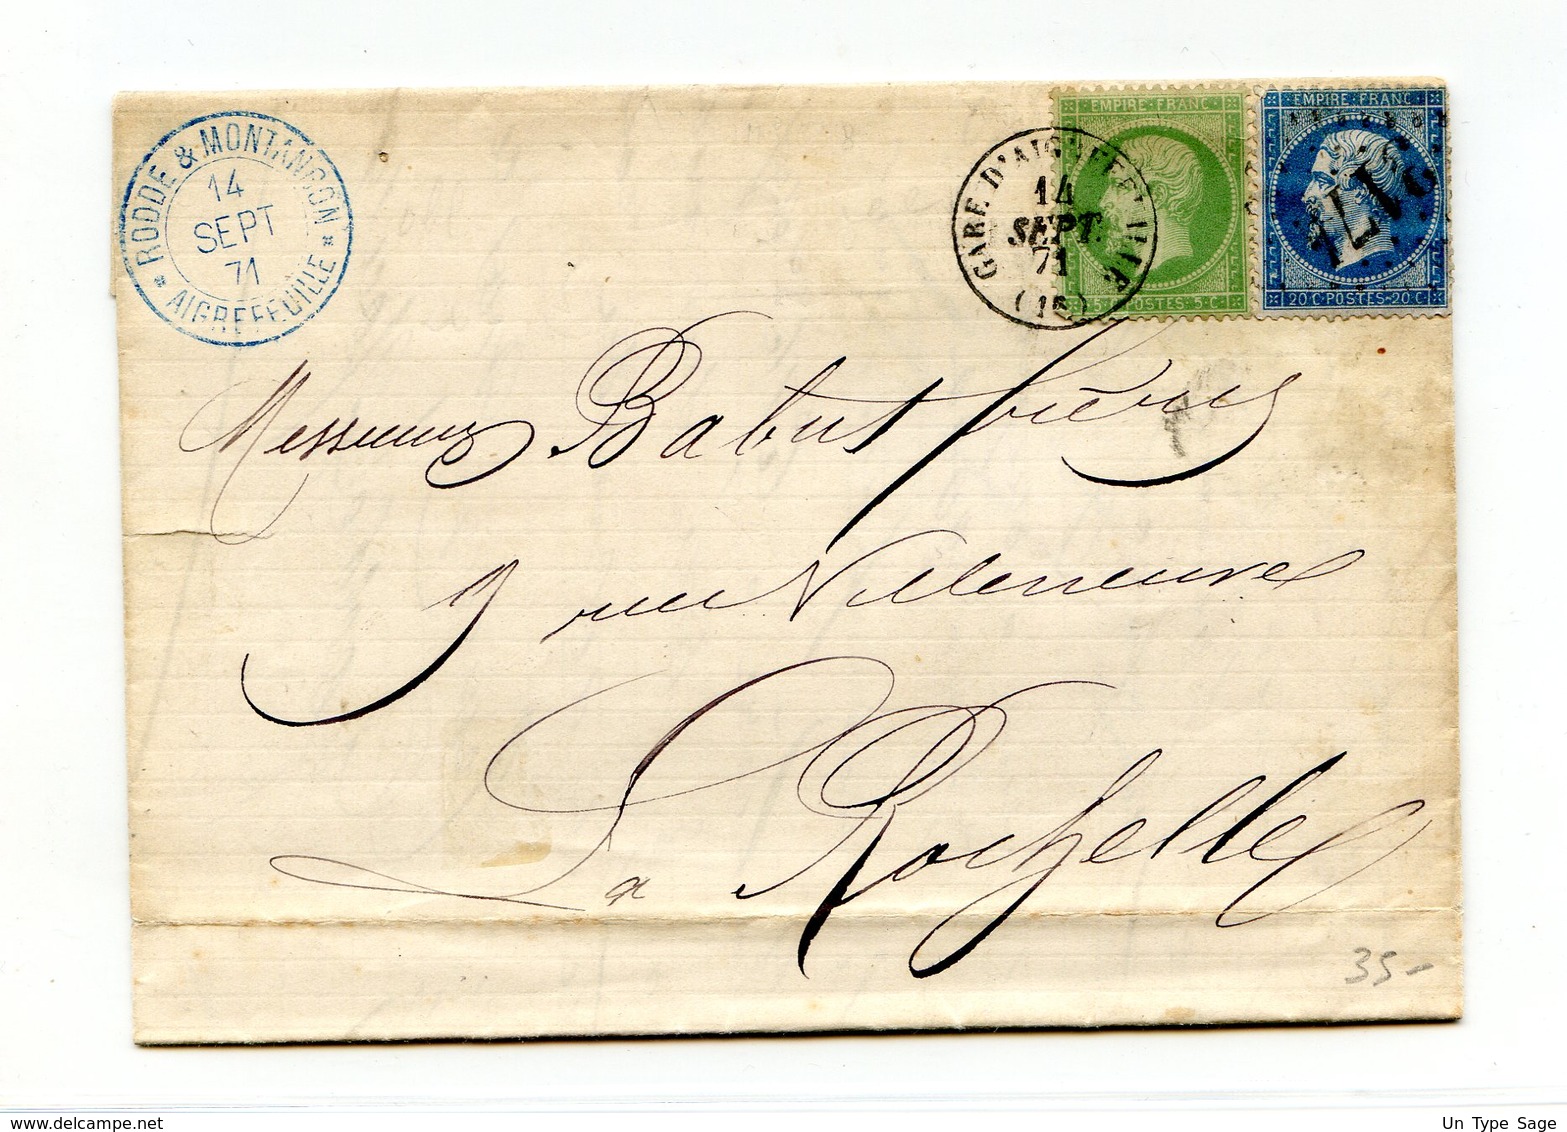 RODDE & MONTANGON
14
SEPT
71
* AIGREFEUILLE *
GARE D'AIGREFEUILLE
14
SEPT.
71
(16)
EMPIRE FRANC
5 C POSTES 5 C
EMPIRE FRANC
20 C POSTES 20 C
Messieurs Babut frères
9 rue Villeneuve
La Rochelle
35-
Un Type Sage